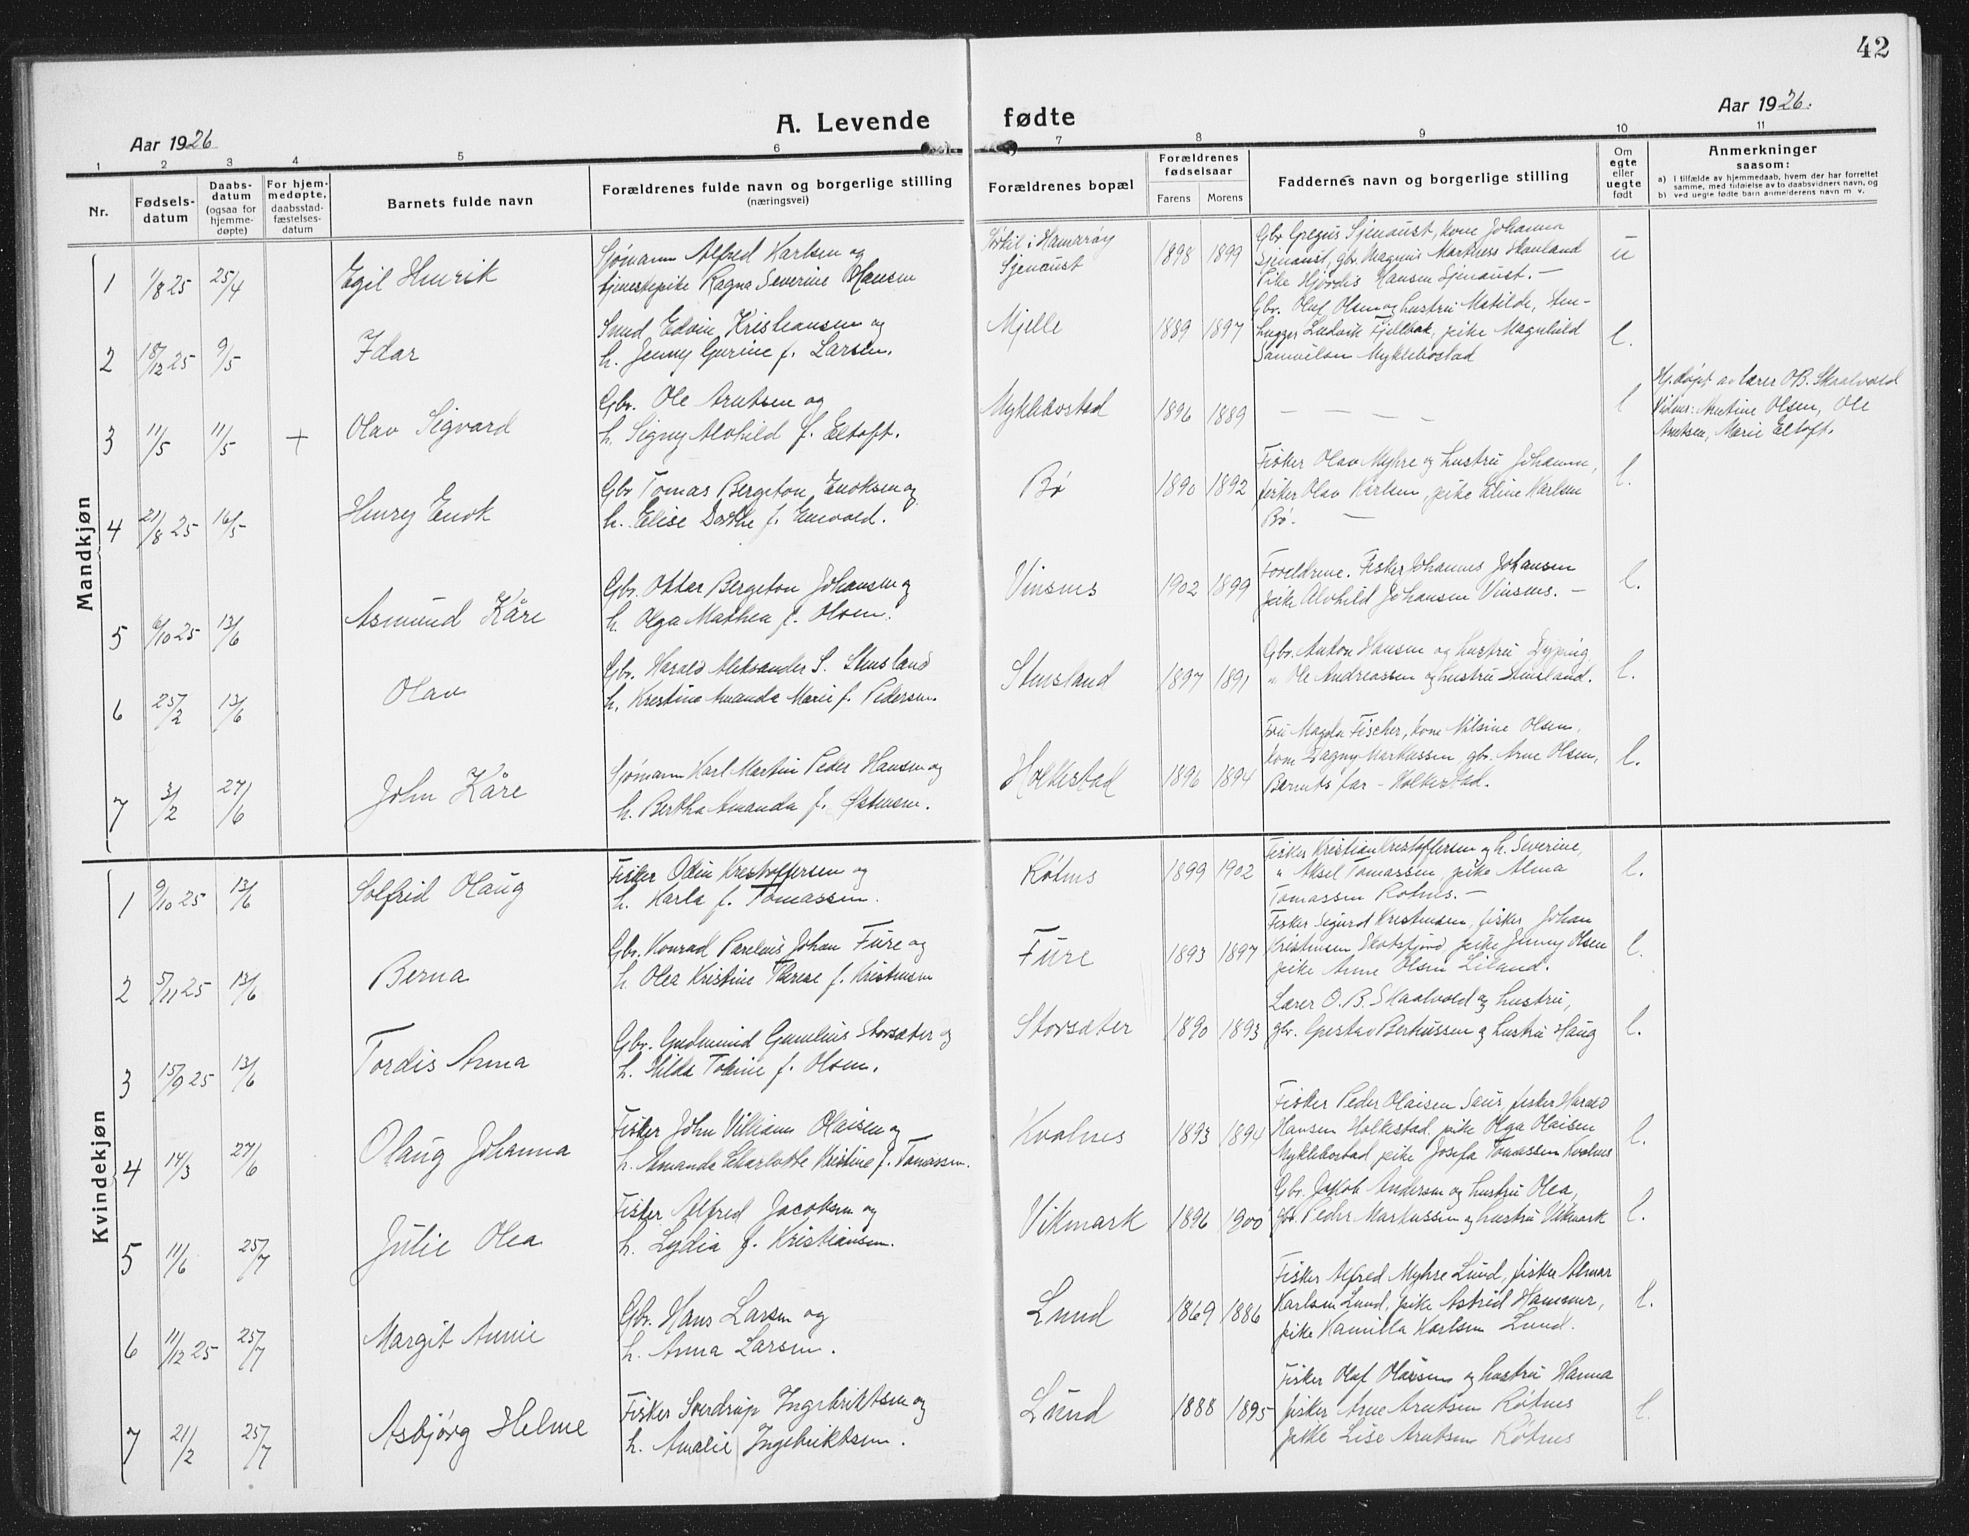 42
Aar 1926.
A. Levende fødte
Aar 1926.
1 2 3 4 5 6 7 8 9 10 11
Nr.
Fødsels-
datum
Daabs-
datum
(ogsaa for
hjemme-
døpte)
For hjem-
medøpte,
daabsstad-
fæstelses-
datum
Barnets fulde navn
Forældrenes fulde navn og borgerlige stilling
(næringsvei)
Forældrenes bopæl
Forældrenes
fødselsaar
Farens Morens
Faddernes navn og borgerlige stilling
Om
egte
eller
uegte
født
Anmerkninger
saasom:
a) I tilfælde av hjemmedaab, hvem der har forrettet
samme, med tilføielse av to daabsvidners navn, og
b) ved uegte fødte barn anmelderens navn m. v.
Mandkjøn
1 1/8 25 25/4 Egil Henrik
Sjømann Alfred Karlsen og
tjenestepike Ragna Severine Hansen
i Hamarøy
Sjenaust
1898 1899
Gbr Gregus Sjenaust, kone Johanna
Sjenaust, gbr. Magnus Markhess Skauland
Pike Hjørdis Hansen Sjenaust. –
u
2 18/12 25 9/5 Idar
Smed Edvin Kristiansen og
h. Jenny Gurine f. Larsen.
Mjelle
1889 1897
Gbr. Oluf Olsen og hustru Matilde, Sten-
hugger Ludvik Fjellbak, pike Magnhild
Samuelsen Myklebostad
l.
3 11/5 11/5 + Olav Sigvard
Gbr. Ole Arntsen og
h. Signy Alvhild f. Eltoft.
Myklebostad
1896 1889
– – – –
l
Hj.døpt av lærer O.B. Skaalvold
Vidner: Arntine Olsen, Ole
Arntsen, Marie Eltoft.
4 21/8 25 16/5 Henry Enok
Gbr Tomas Bergiton Enoksen og
h. Elise Dorthe f. Enevold.
Bø
1890 1892
Fisker Olav Myhre og hustru Johanna,
fisker Olav Karlsen, pike Eline Karlsen
Bø. –
l.
5 6/10 25 13/6 Asmund Kåre
Gbr. Ottar Bergiton Johansen og
h. Olga Mathea f. Olsen.
Vinsnes
1902 1899
Foreldrene. Fisker Johannes Johansen
pike Alvhild Johansen Vinsnes. –
l.
6 25/2 13/6 Olav
Gbr. Harald Aleksander S. Stensland
h. Kristine Amanda Marie f. Pedersen.
Stensland
1897 1891
Gbr. Anton Hansen og hustru Dyping
" Ole Andreassen og hustru Stensland.
l.
7 3/2 27/6 John Kåre
Sjømann Karl Martin Peder Hansen og
h. Bertha Amanda f. Østensen.
Holkestad
1896 1894
Fru Magda Fischer, kone Nilsine Olsen,
kone Dagny Markussen gbr. Arne Olsen,
Barnets far – Holkestad.
l.
Kvindekjøn
1 9/10 25 13/6 Solfrid Olaug
Fisker Odin Kristoffersen og
h. Harla f. Tomassen.
Røtnes
1899 1902
Fisker Kristian Kristoffersen og h. Severine,
" Aksel Tomassen, pike Alma
Tomassen Røtnes. –
l.
2 5/11 25 13/6 Berna
Gbr. Konrad Parelius Johan Fure og
h. Olea Kristine Therese f. Kristensen
Fure
1893 1897
Fisker Sigurd Kristensen, fisker Johan
Kristensen Skotsfjord, pike Jenny Olsen
pike Anne Olsen Liland.
l.
3 15/9 25 13/6 Tordis Anna
Gbr. Gudmund Gunelius Storsæter og
h. Hilda Tobine f. Olsen.
Storsæter
1890 1893
Lærer O. B. Skaalvold og hustru,
gbr. Gustav Berhussen og hustru Haug
l.
4 14/3 27/6 Olaug Johanna
Fisker John Villiam Olaisen og
h. Amanda Scharlotte Kristine f. Tomassen.
Kvalnes
1893 1894
Fisker Peder Olaisen Saur, fisker Harald
Hansen Holkestad, pike Olga Olaisen
Myklebostad pike Josefa Tomassen Kvalnes
l.
5 11/6 25/7 Julie Olea
Fisker Alfred Jacobsen og
h. Lydia f. Kristiansen.
Vikmark
1896 1900
Gbr. Jakob Andersen og hustru Olea,
gbr. Peder Markussen og hustru Vikmark
l.
6 11/12 25 25/7 Margit Annie
Gbr. Hans Larsen og
h. Anna Larsen.
Lund
1869 1886
Fisker Alfred Myhre Lund, fisker Almar
Karlsen Lund, pike Astrid Hammer,
pike Kamilla Karlsen Lund.
l.
7 21/2 25/7 Asbjørg Helene
Fisker Sverdrup Ingebriktsen og
h. Amalie Ingebriktsen.
Lund
1888 1895
Fisker Olaf Olaissen og hustru Hanna
fisker Arne Arntsen Røtnes
pike Lise Arntsen Røtnes
l.